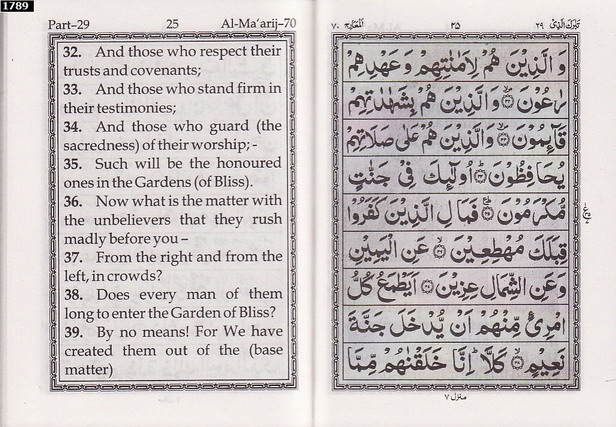 1789
Part–29 25 Al-Ma'arij–70
32. And those who respect their
trusts and covenants;
33. And those who stand firm in
their testimonies;
34. And those who guard (the
sacredness) of their worship; -
35. Such will be the honoured
ones in the Gardens (of Bliss).
36. Now what is the matter with
the unbelievers that they rush
madly before you –
37. From the right and from the
left, in crowds?
38. Does every man of them
long to enter the Garden of Bliss?
39. By no means! For We have
created them out of the (base
matter)
تبٰرك الذی ۲۹ ۲۵ المعارج ۷۰
وَ الَّذِيْنَ هُمْ لِاَمٰنٰتِهِمْ وَعَهْدِهِمْ
رٰعُوْنَ ۝۳۲ وَ الَّذِيْنَ هُمْ بِشَهٰدٰتِهِمْ
قَآئِمُوْنَ ۝۳۳ وَالَّذِيْنَ هُمْ عَلٰى صَلَاتِهِمْ
يُحَافِظُوْنَ ۝۳۴ اُولٰٓئِكَ فِيْ جَنّٰتٍ
مُّكْرَمُوْنَ ۝۳۵ فَمَالِ الَّذِيْنَ كَفَرُوْا
قِبَلَكَ مُهْطِعِيْنَ ۝۳۶ عَنِ الْيَمِيْنِ
وَعَنِ الشِّمَالِ عِزِيْنَ ۝۳۷ اَيَطْمَعُ كُلُّ
امْرِئٍ مِّنْهُمْ اَنْ يُّدْخَلَ جَنَّةَ
نَعِيْمٍ ۝۳۸ كَلَّا ؕ اِنَّا خَلَقْنٰهُمْ مِّمَّا
منزل ۷